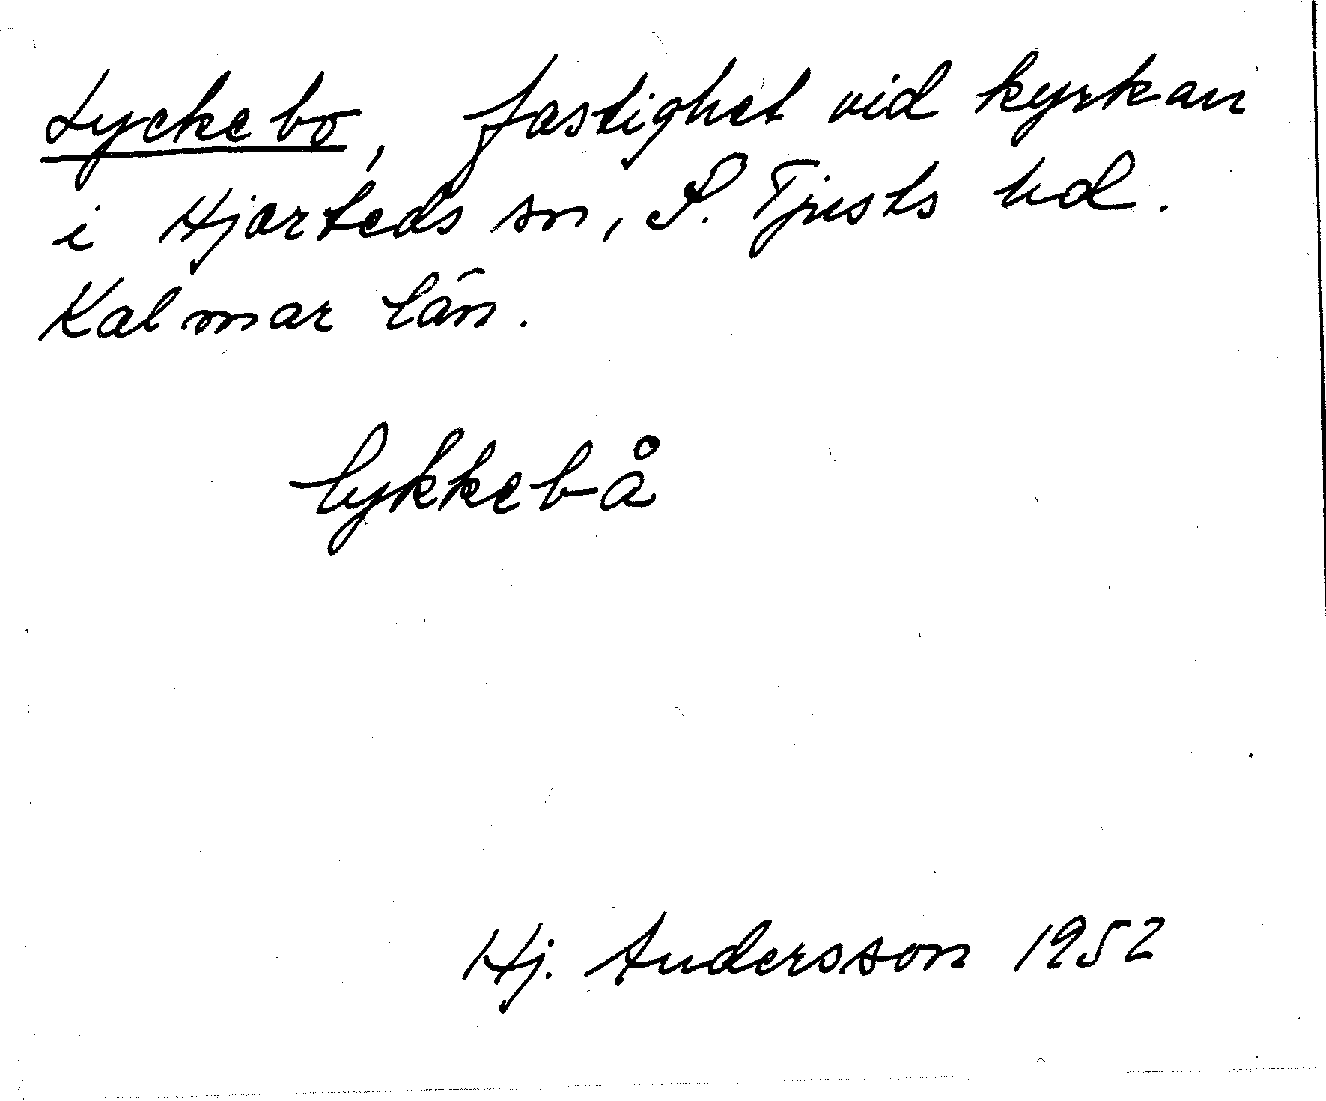 Lyckebo, fastighet vid kyrkan
i Hjorteds sn, S. Tjusts hd.
Kalmar län.
lykkebå
Hj. Andersson 1952